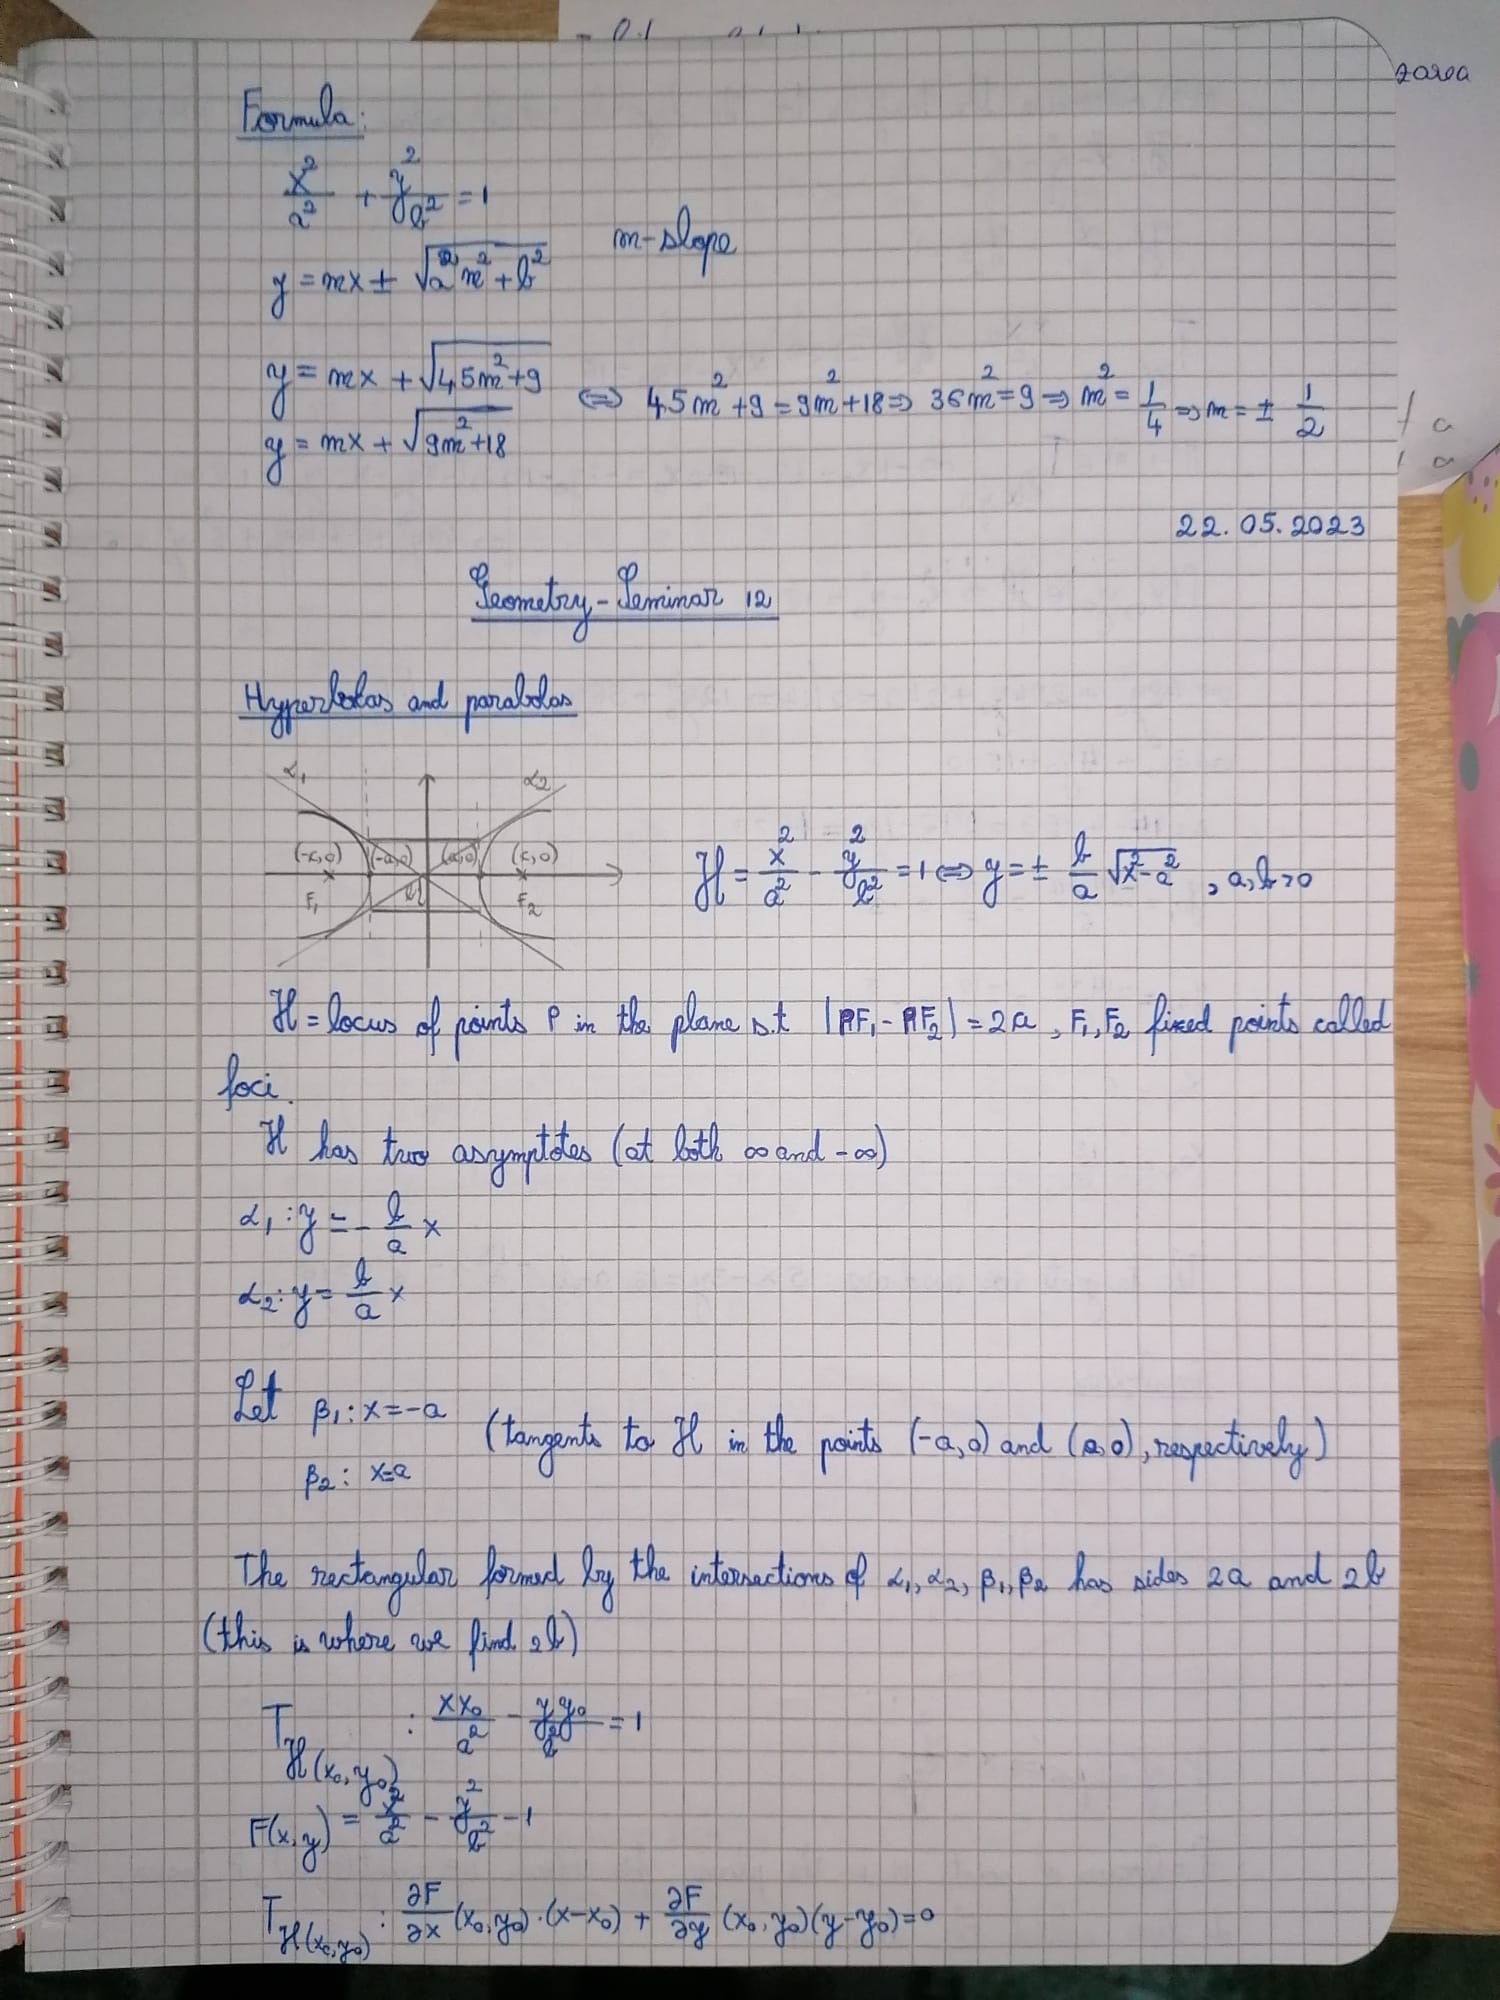 zarea
Formula:
x²/a² + y²/b² = 1
m-slope
y = mx ± √(a²m² + b²)
y = mx + √(45m²+9)
⇔ 45m² + 9 = 9m² + 18 ⇒ 36m² = 9 ⇒ m² = 1/4 ⇒ m = ± 1/2
y = mx + √(9m²+18)
22.05.2023
Geometry - Seminar 12
Hyperbolas and parabolas
α₁ α₂
(-c,0) (-a,0) (a,0) (c,0)
F₁ F₂
H = x²/a² - y²/b² = 1 ⇔ y = ± b/a √(x²-a²) , a,b>0
H = locus of points P in the plane s.t |PF₁ - PF₂| = 2a , F₁,F₂ fixed points called
foci.
H has two asymptotes (at both ∞ and -∞)
α₁ : y = - b/a x
α₂ : y = b/a x
Let β₁ : x = -a
(tangents to H in the points (-a,0) and (a,0), respectively)
β₂ : x=a
The rectangular formed by the intersections of α₁, α₂, β₁, β₂ has sides 2a and 2b
(this is where we find 2b)
T H(x₀,y₀) : xx₀/a² - yy₀/b² = 1
F(x,y) = x²/a² - y²/b² - 1
T H(x₀,y₀) : ∂F/∂x (x₀,y₀)·(x-x₀) + ∂F/∂y (x₀,y₀)(y-y₀)=0